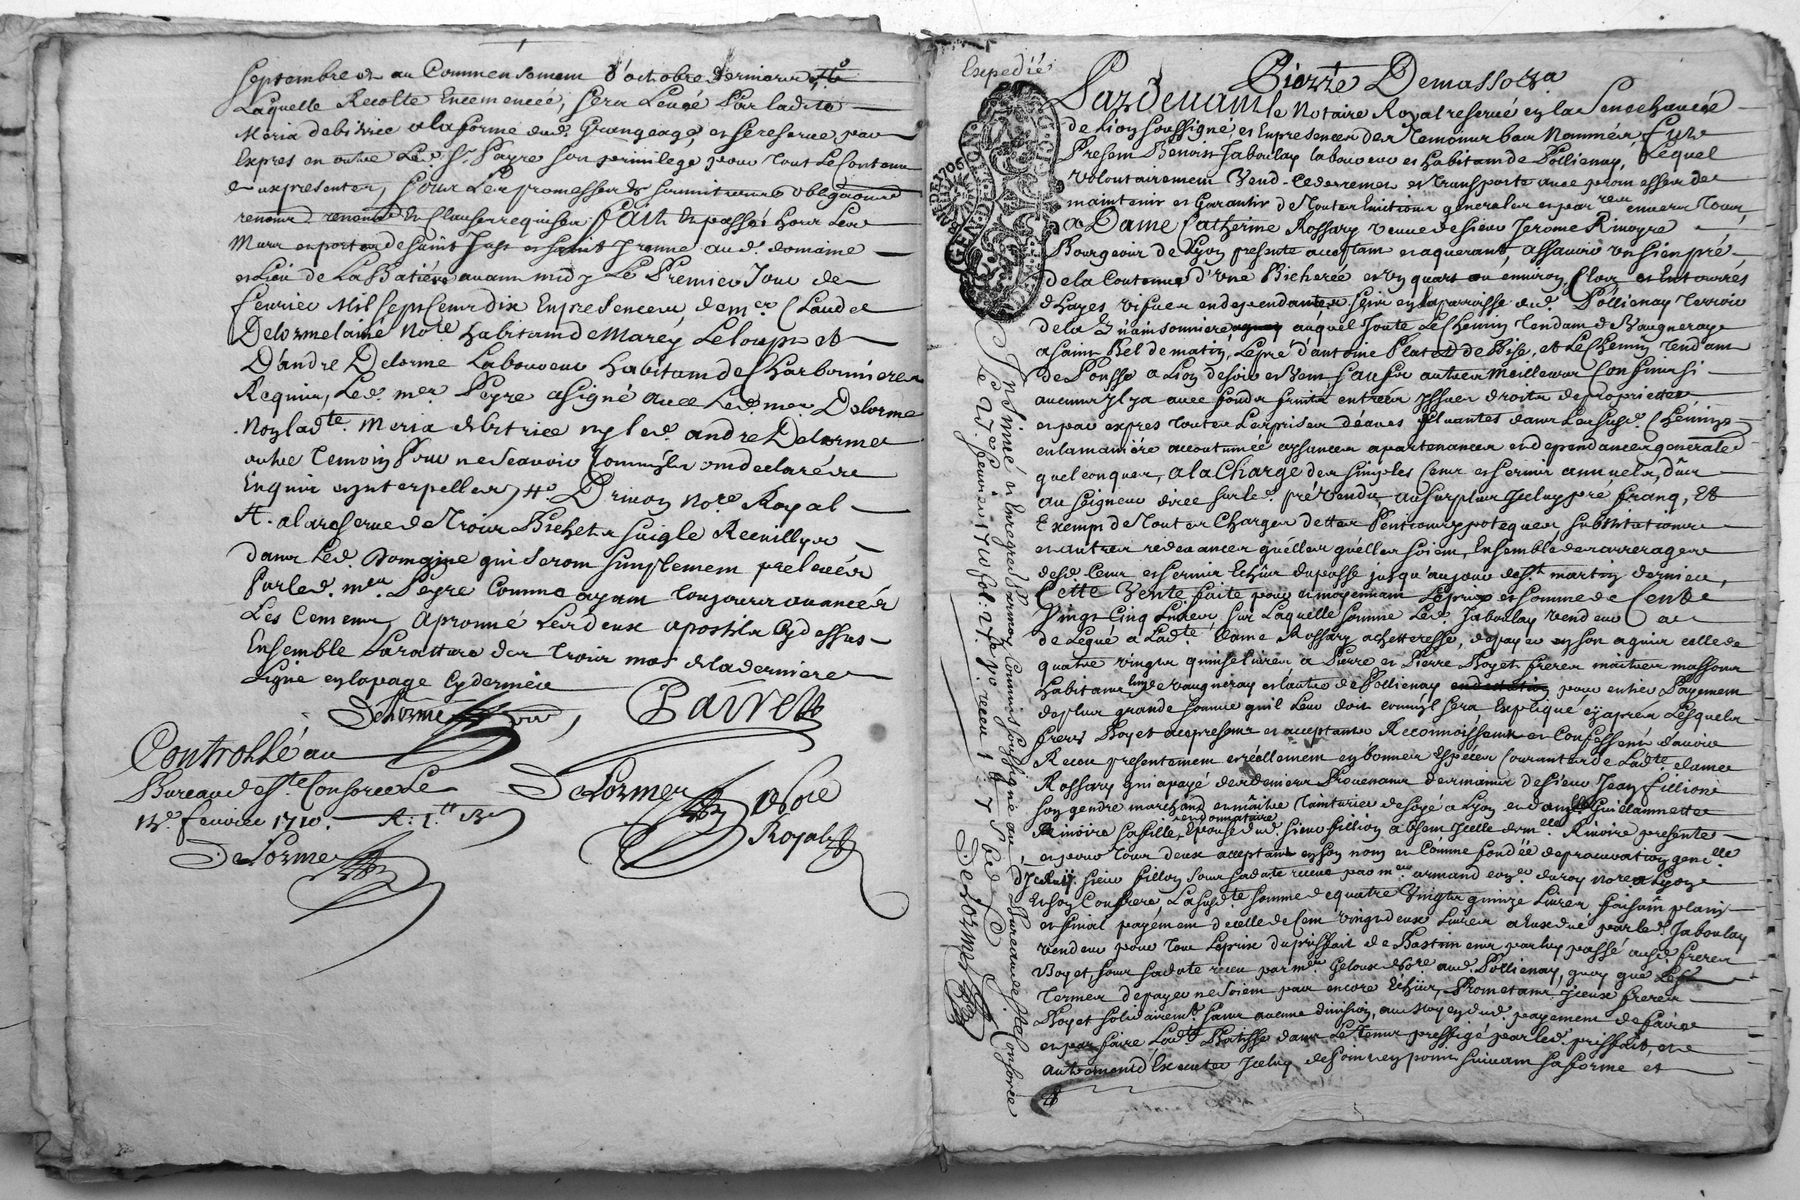 Septembre et au Commensement d'octobre dernier
Laquelle Recolte Encemencée, sera Levée Par ladite
Meria debitrice a la forme dud. Grangeage, et se reserve par
Expres en outre Led. Sr. Payre son privilege pour tout le Contenu
renond. renoncé & Clauses requises fait & passé hors Les
Murs et portes de saint Just et saint Irenne au d. domaine
et Lieu de La Batiere avant midy Le Premier Jour de
fevrier Mil sept Cent dix En presence de mer. Claude
Delorme laine Note. habitant de Marcy Le Loup et
D'andré Delorme Laboureur habitant de Charbonnieres
Requis, Led. mer Peyre a signé avec Led. mer. Delorme
Non ladte. Meria debitrice ny led. andré Delorme
autre temoin Pour ne scavoir Comme ils ont declaré de
Enquis et interpellés Nore. Royal
A. a la reserve de trois Bichets seigle Recuillyr
dans Led. Domaine qui seront simplement prelevés
Par led. mer. Peyre Comme ayant toujours avancés
Les Cemens, Aprouvé Les deux apostils Cy dessus
Ensemble La rature des trois mots de la derniere
Ligne en la page Cy derniere
Delorme
Controllé au
Bureau de Ste. Consorce Le
fevrier 1710.
Delorme
Delorme Nore
Royal
Expedié
Pardevant le Notaire Royal reservé en la Senechaucée
de Lion soussigné, et En presence des Temoins bas Nommés fut
Present Benoist Jaboulay laboureur et habitant de Pollienay, Lequel
Volontairement Vend, cede remet et transporte avec promesses de
maintenir et Garantir de toutes Evictions generales et par.res envers tous,
a Dame Catherine Rossary veuve de sieur Jerome Rinoyre
Bourgeois de Lyon presente acceptant et aquerant, assavoir un sien pré
de la Contenue d'une Bicherée et un quart ou environ, Clos et Entourrés
d'hayes vifves en dependantes, scize en la parroisse dud. Pollienay terroir
auquel Joute Le Chemin tendant de Vaugneray
a saint Bel de matin, Le pré d'antoine Plat de Bise, et Le Chemin tendant
de Pousse a Lion de soir et vent sauf ses autres Meilleurs Confins si
aucuns y a avec fonds fruits entrées yssues droits de proprietés,
et par expres toutes Les prises d'eaues fluantes dans Les susd. Chemins
en la maniere accoutumée aysances apartenances et dependances generales
quelconques, a la Charge des simples Cens et servis annuels, dûs
au seigneur direc sur led. pré vendu au surplus Iceluy pré franq, Et
Exempt de toutes Charges dettes Pensions ypoteques substitutions
et autres redevances quelles quelles soient, Ensemble des arrerages
desd. Cens et servis Echûs du passé jusqu'au jour de St. martin dernier,
Cette Vente faite pour et moyennant Le prix et somme de Cent
Vingt Cinq Livres, sur Laquelle somme Led. Jaboulay vendeur a
de Legué a Ladte. Dame Rossary achetteresse, de payer en son aquit celle de
quatre vingts quinse livres a Pierre et Pierre Boyet freres maitres massons
habitants lun de vaugneray et lautre de Pollienay pour entier Payement
de plus grande somme quil Leur doit comm'il sera Expliqué cy aprés Lesquels
freres Boyet cy presents et acceptants Reconnoissent et Confessent d'avoir
Receu presentement et réellement en bonnes Especes Courantes de Ladte dame
Rossary qui a payé des deniers Provenants des mains de sieur Jean fillion
son gendre marchand et maitre teinturier de soye a Lyon et damlle Guilaumette
Rinoire sa fille, Epouse dud. sieur fillion absent Icelle dmlle. Rinoire presente
et pour tous deux acceptant en son nom et Comme fondée de procuration genlle.
d'Iceluy sieur fillion sous sa date receue par mer armand coner. du roy nore a Lyon
Et son Confrere La susdte somme de quatre Vingts quinze Livres faisant plain
et final payement de celle de Cent vingt deux Livres a Eux due par led. Jaboulay
vendeur pour tout Le prix du prisfait de Bastiment par luy passé ausd. freres
Boyet, sous sa date receu par mer. Geloux Nore. aud. Pollienay, quoy que Les
termes de payer ne soient pas encore Echûs, Promettans Iceux freres
Boyet solidairemt. sans aucune division, au moyen dud. payement de faire
et par faire Ladte Batisse dans Le temps pressigé par led. prisfait, et
autrement d'Executer Iceluy de point en point suivant sa forme et
Insinué et Enregré. Par moy Commis soussigné au Bureau de Ste Consorce
Delorme
GENERALITE DE LYON